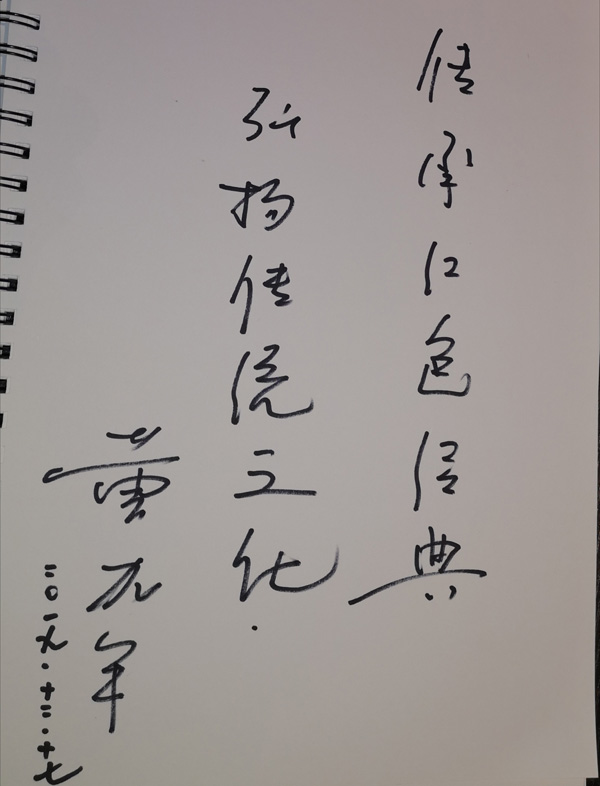 传承红色经典
弘扬传统文化.
黄 年
二〇一九.十二.十七